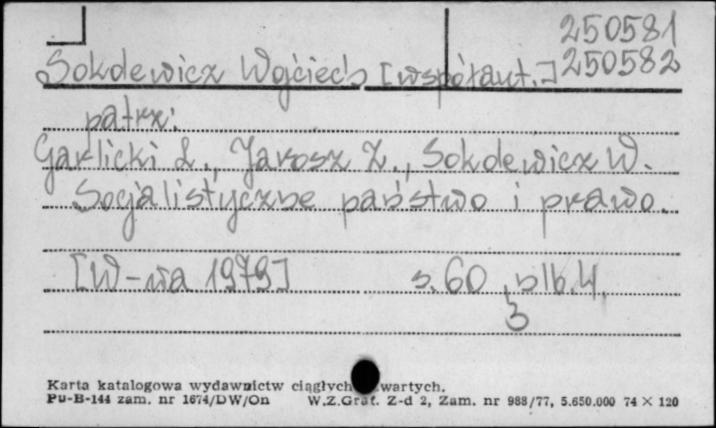 250581
Sokolewicz Wojciech [współaut.] 250582
patrz:
Garlicki L., Jarosz Z., Sokolewicz W.
Socjalistyczne państwo i prawo.
[W-wa 1979] s. 60, nlb. 4.
3
Karta katalogowa wydawnictw ciągłych wartych.
Pu-B-144 zam. nr 1674/DW/On W.Z.Graf. Z-d 2, Zam. nr 988/77, 5.650.000 74 × 120